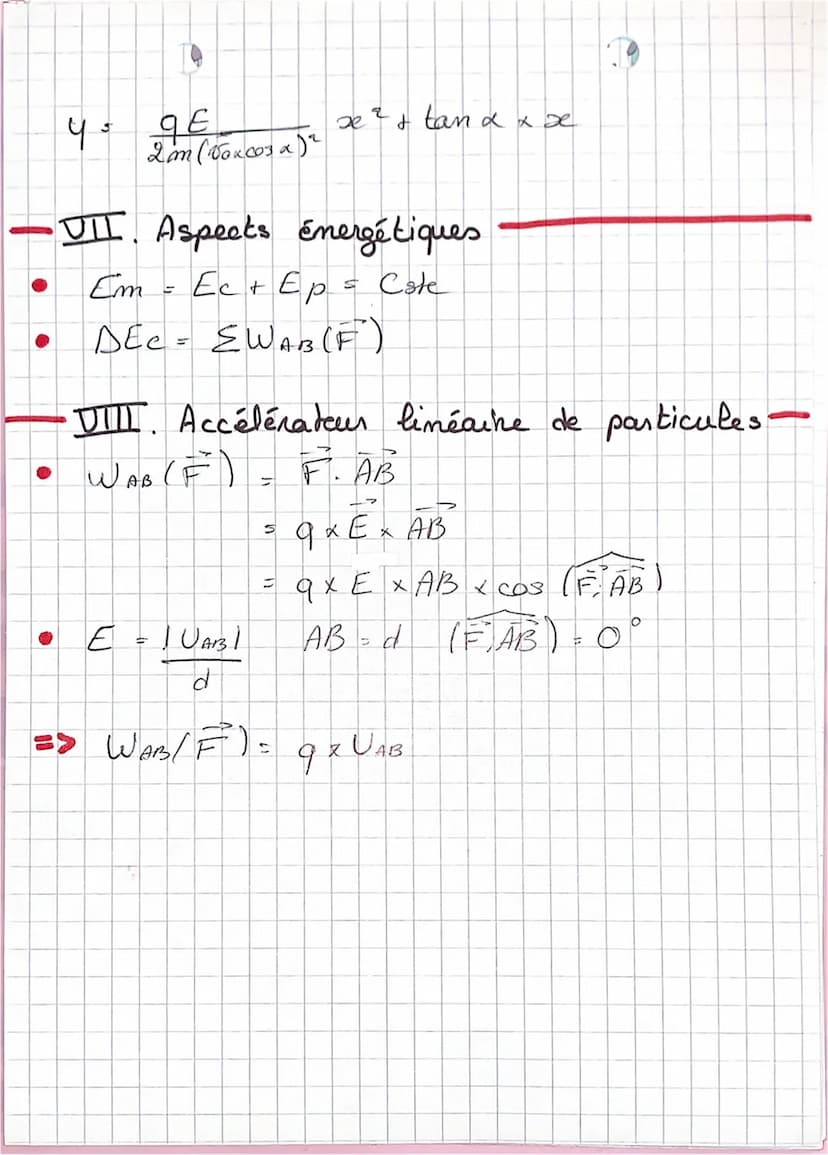 y = qE / 2m(v₀×cos α)² x² + tan α × x
VII. Aspects énergétiques
• Em = Ec + Ep = Cste
• ΔEc = ΣW_AB(F⃗)
VIII. Accélérateur linéaire de particules
• W_AB(F⃗) = F⃗ . AB⃗
= q × E⃗ × AB⃗
= q × E × AB × cos (F⃗; AB⃗)
• E = |U_AB| / d AB = d (F⃗; AB⃗) = 0°
=> W_AB(F⃗) = q × U_AB